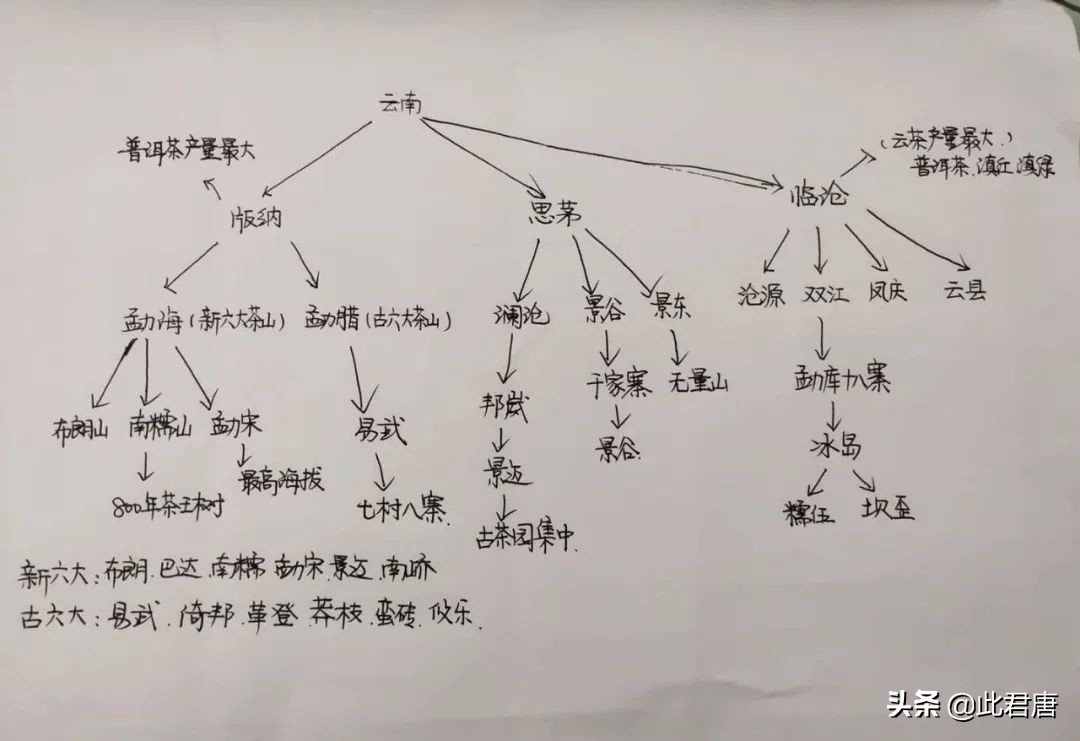 云南
普洱茶产量最大
(云茶产量最大.)
普洱茶.滇红.滇绿
版纳
思茅
临沧
沧源 双江 凤庆 云县
勐海(新六大茶山) 勐腊(古六大茶山)
澜沧 景谷 景东
布朗山 南糯山 勐宋
易武
邦崴
于家寨 无量山
勐库十八寨
800年茶王树
最高海拔
七村八寨.
景迈
景谷.
冰岛
古茶园集中.
糯伍 坝歪
新六大:布朗.巴达.南糯.勐宋.景迈.南峤
古六大:易武.倚邦.革登.莽枝.蛮砖.攸乐.
头条 @此君唐